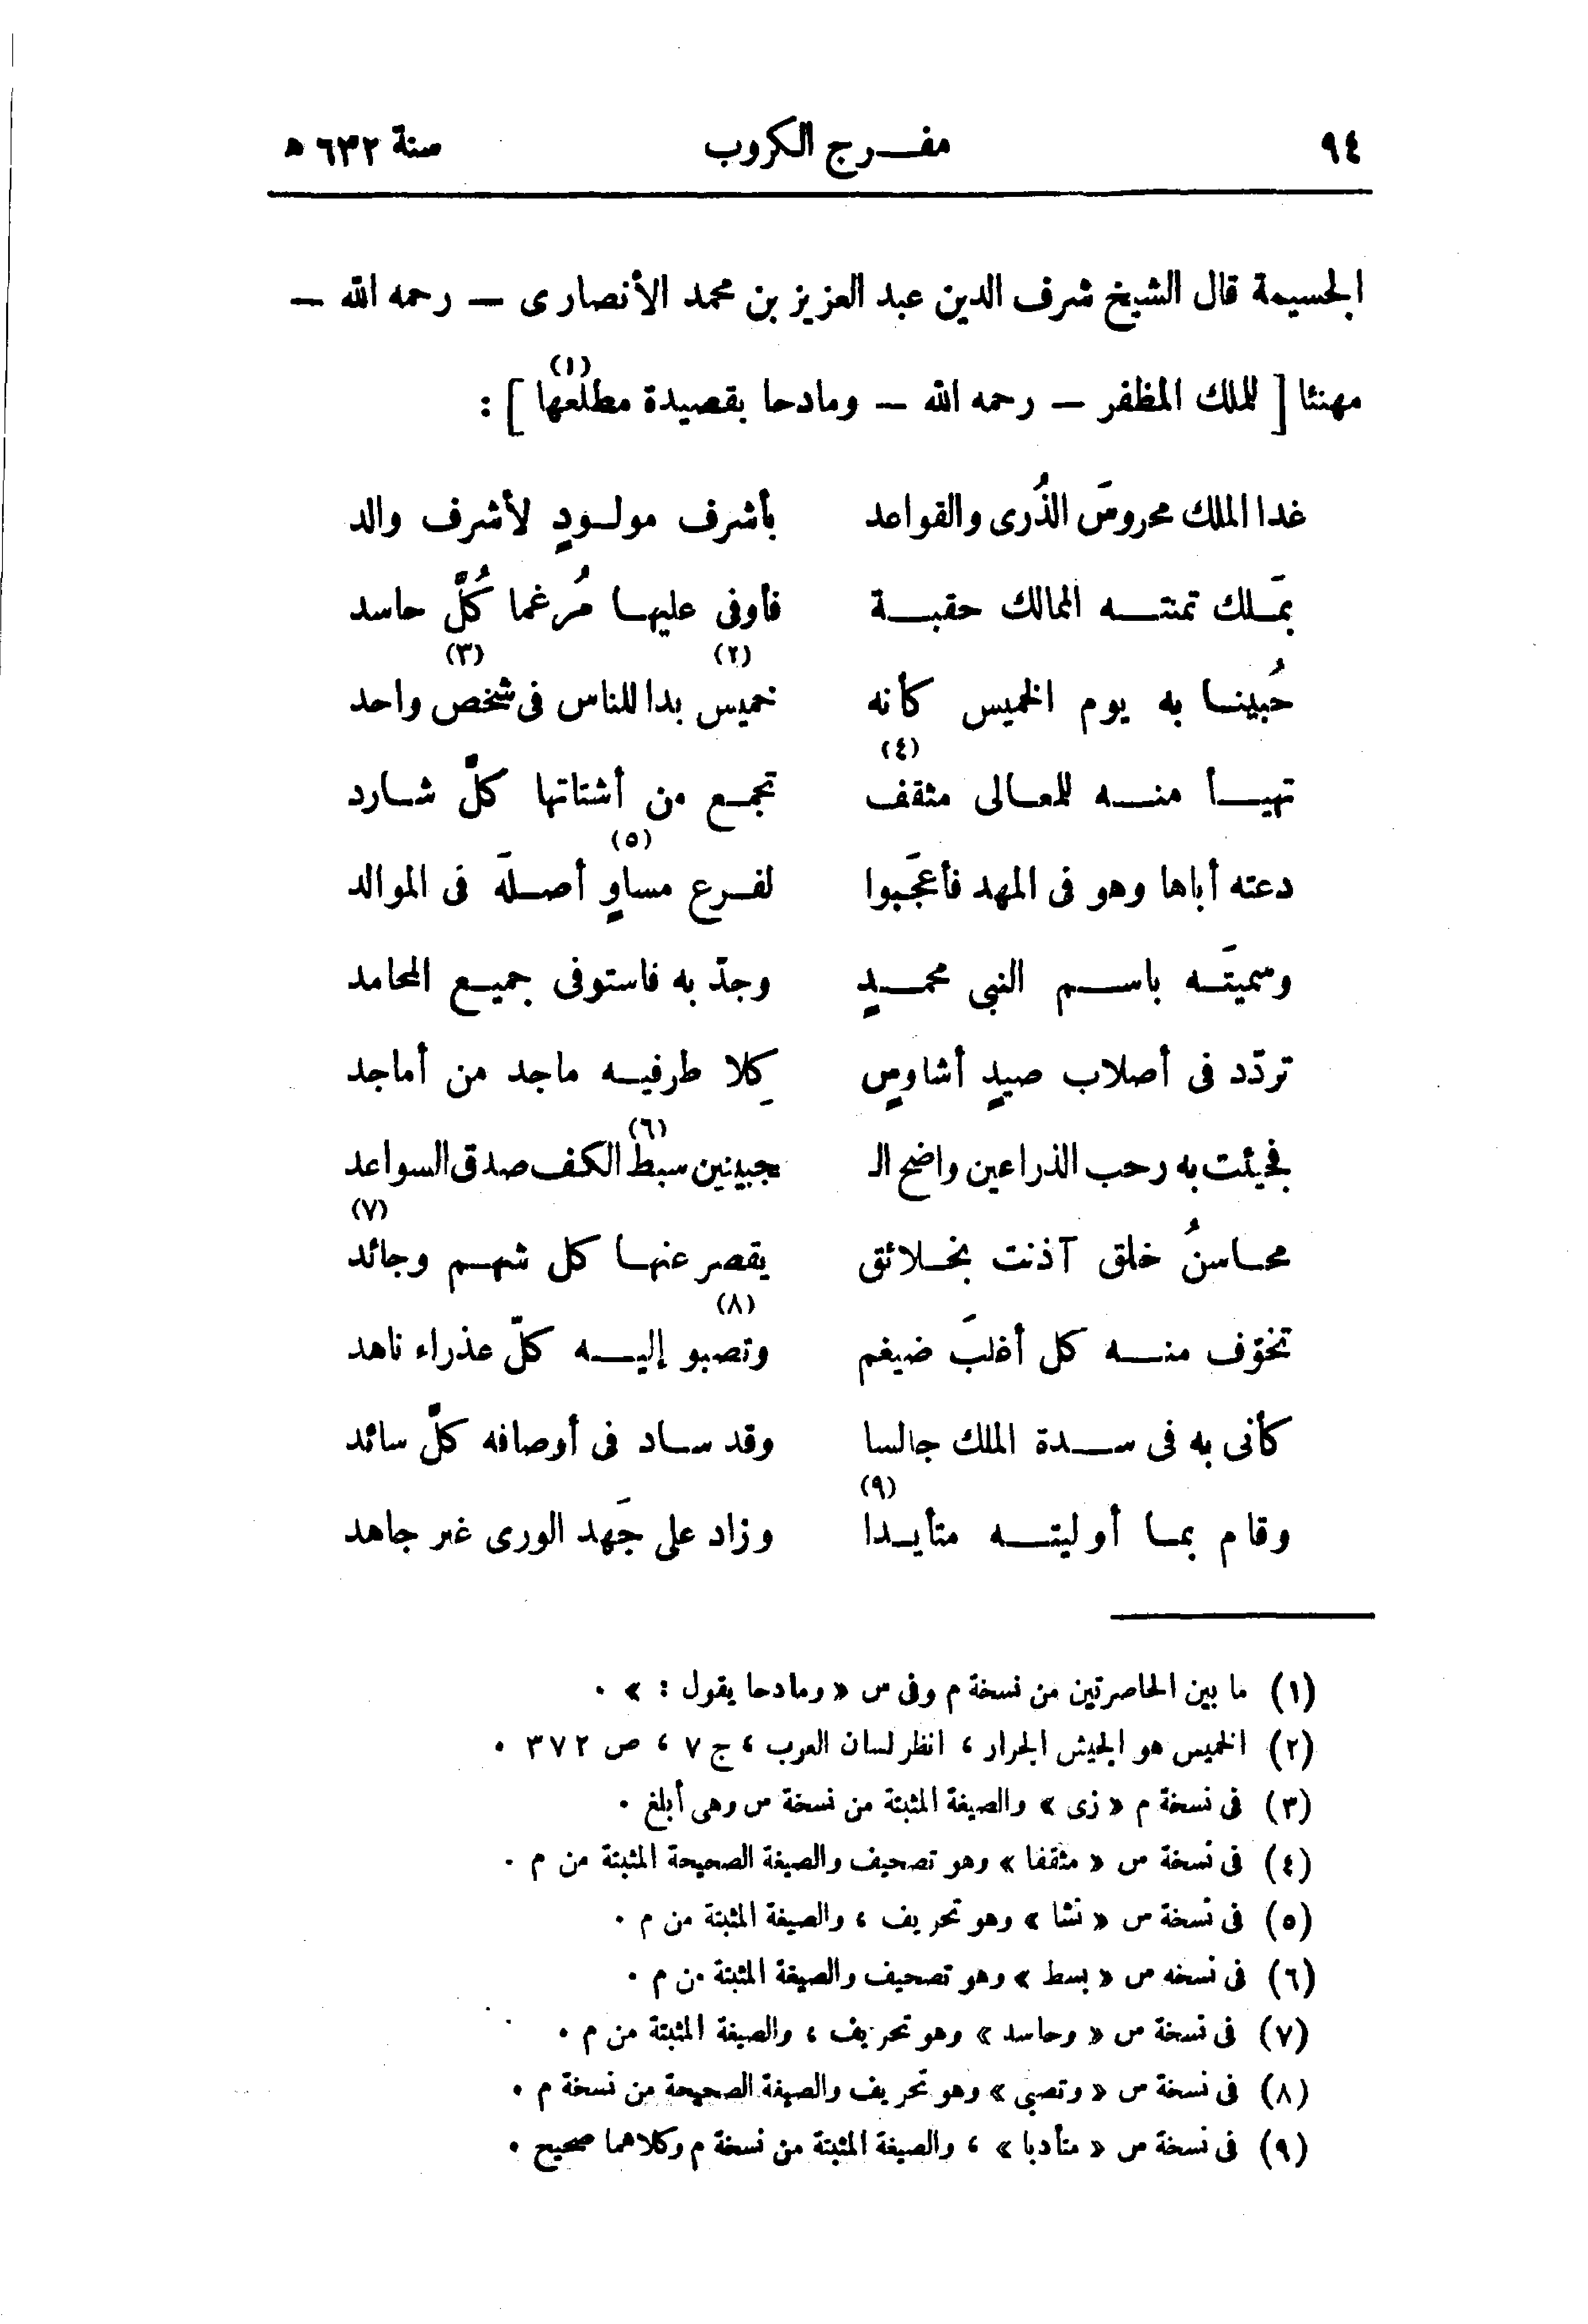 ٩٤ مفـرج الكروب سنة ٦٣٢ ه
الجسيمة قال الشيخ شرف الدين عبد العزيز بن محمد الأنصارى — رحمه الله —
مهنئا [ للملك المظفر — رحمه الله — ومادحا بقصيدة مطلعها (١) ] :
غدا الملك محروسَ الذُرى والقواعد بأشرف مولودٍ لأشرف والد
بمَلك تمنته الممالك حقبة فأوفى عليها مُرغما كُلَّ حاسد
حُبينا به يوم الخميس كأنه خميس (٢) بدا للناس فى شخص (٣) واحد
تهيأ منه للمعالى مثقف (٤) تجمع من أشتاتها كلَّ شارد
دعته أباها وهو فى المهد فأعجَبوا لفرع مساوٍ (٥) أصلَه فى الموالد
وسميتَه باسم النبى محمدٍ وجدّ به فاستوفى جميع المحامد
تردّد فى أصلاب صيدٍ أشاوسٍ كِلا طرفيه ماجد من أماجد
فجئت به رحب الذراعين واضح الـ جبينين سبط (٦) الكف صدق السواعد
محاسنُ خلق آذنت بخلائق يقصر عنها كل شهم وجائد (٧)
تخوّف منه كل أغلبَ ضيغم وتصبو (٨) إليه كلّ عذراء ناهد
كأنى به فى سدة الملك جالسا وقد ساد فى أوصافه كلَّ سائد
وقام بما أوليته متأيدا (٩) وزاد على جَهد الورى غير جاهد
(١) ما بين الحاصرتين من نسخة م وفى س « ومادحا يقول : » .
(٢) الخميس هو الجيش الجرار ، انظر لسان العرب ، ج ٧ ، ص ٣٧٢ .
(٣) فى نسخة م « زى » والصيغة المثبتة من نسخة س وهى أبلغ .
(٤) فى نسخة س « مثقفا » وهو تصحيف والصيغة الصحيحة المثبتة من م .
(٥) فى نسخة س « نشا » وهو تحريف ، والصيغة المثبتة من م .
(٦) فى نسخه س « بسط » وهو تصحيف والصيغة المثبتة من م .
(٧) فى نسخة س « وحاسد » وهو تحريف ، والصيغة المثبتة من م .
(٨) فى نسخة س « وتصبى » وهو تحريف والصيغة الصحيحة من نسخة م .
(٩) فى نسخة س « متأدبا » ، والصيغة المثبتة من نسخة م وكلاهما صحيح .